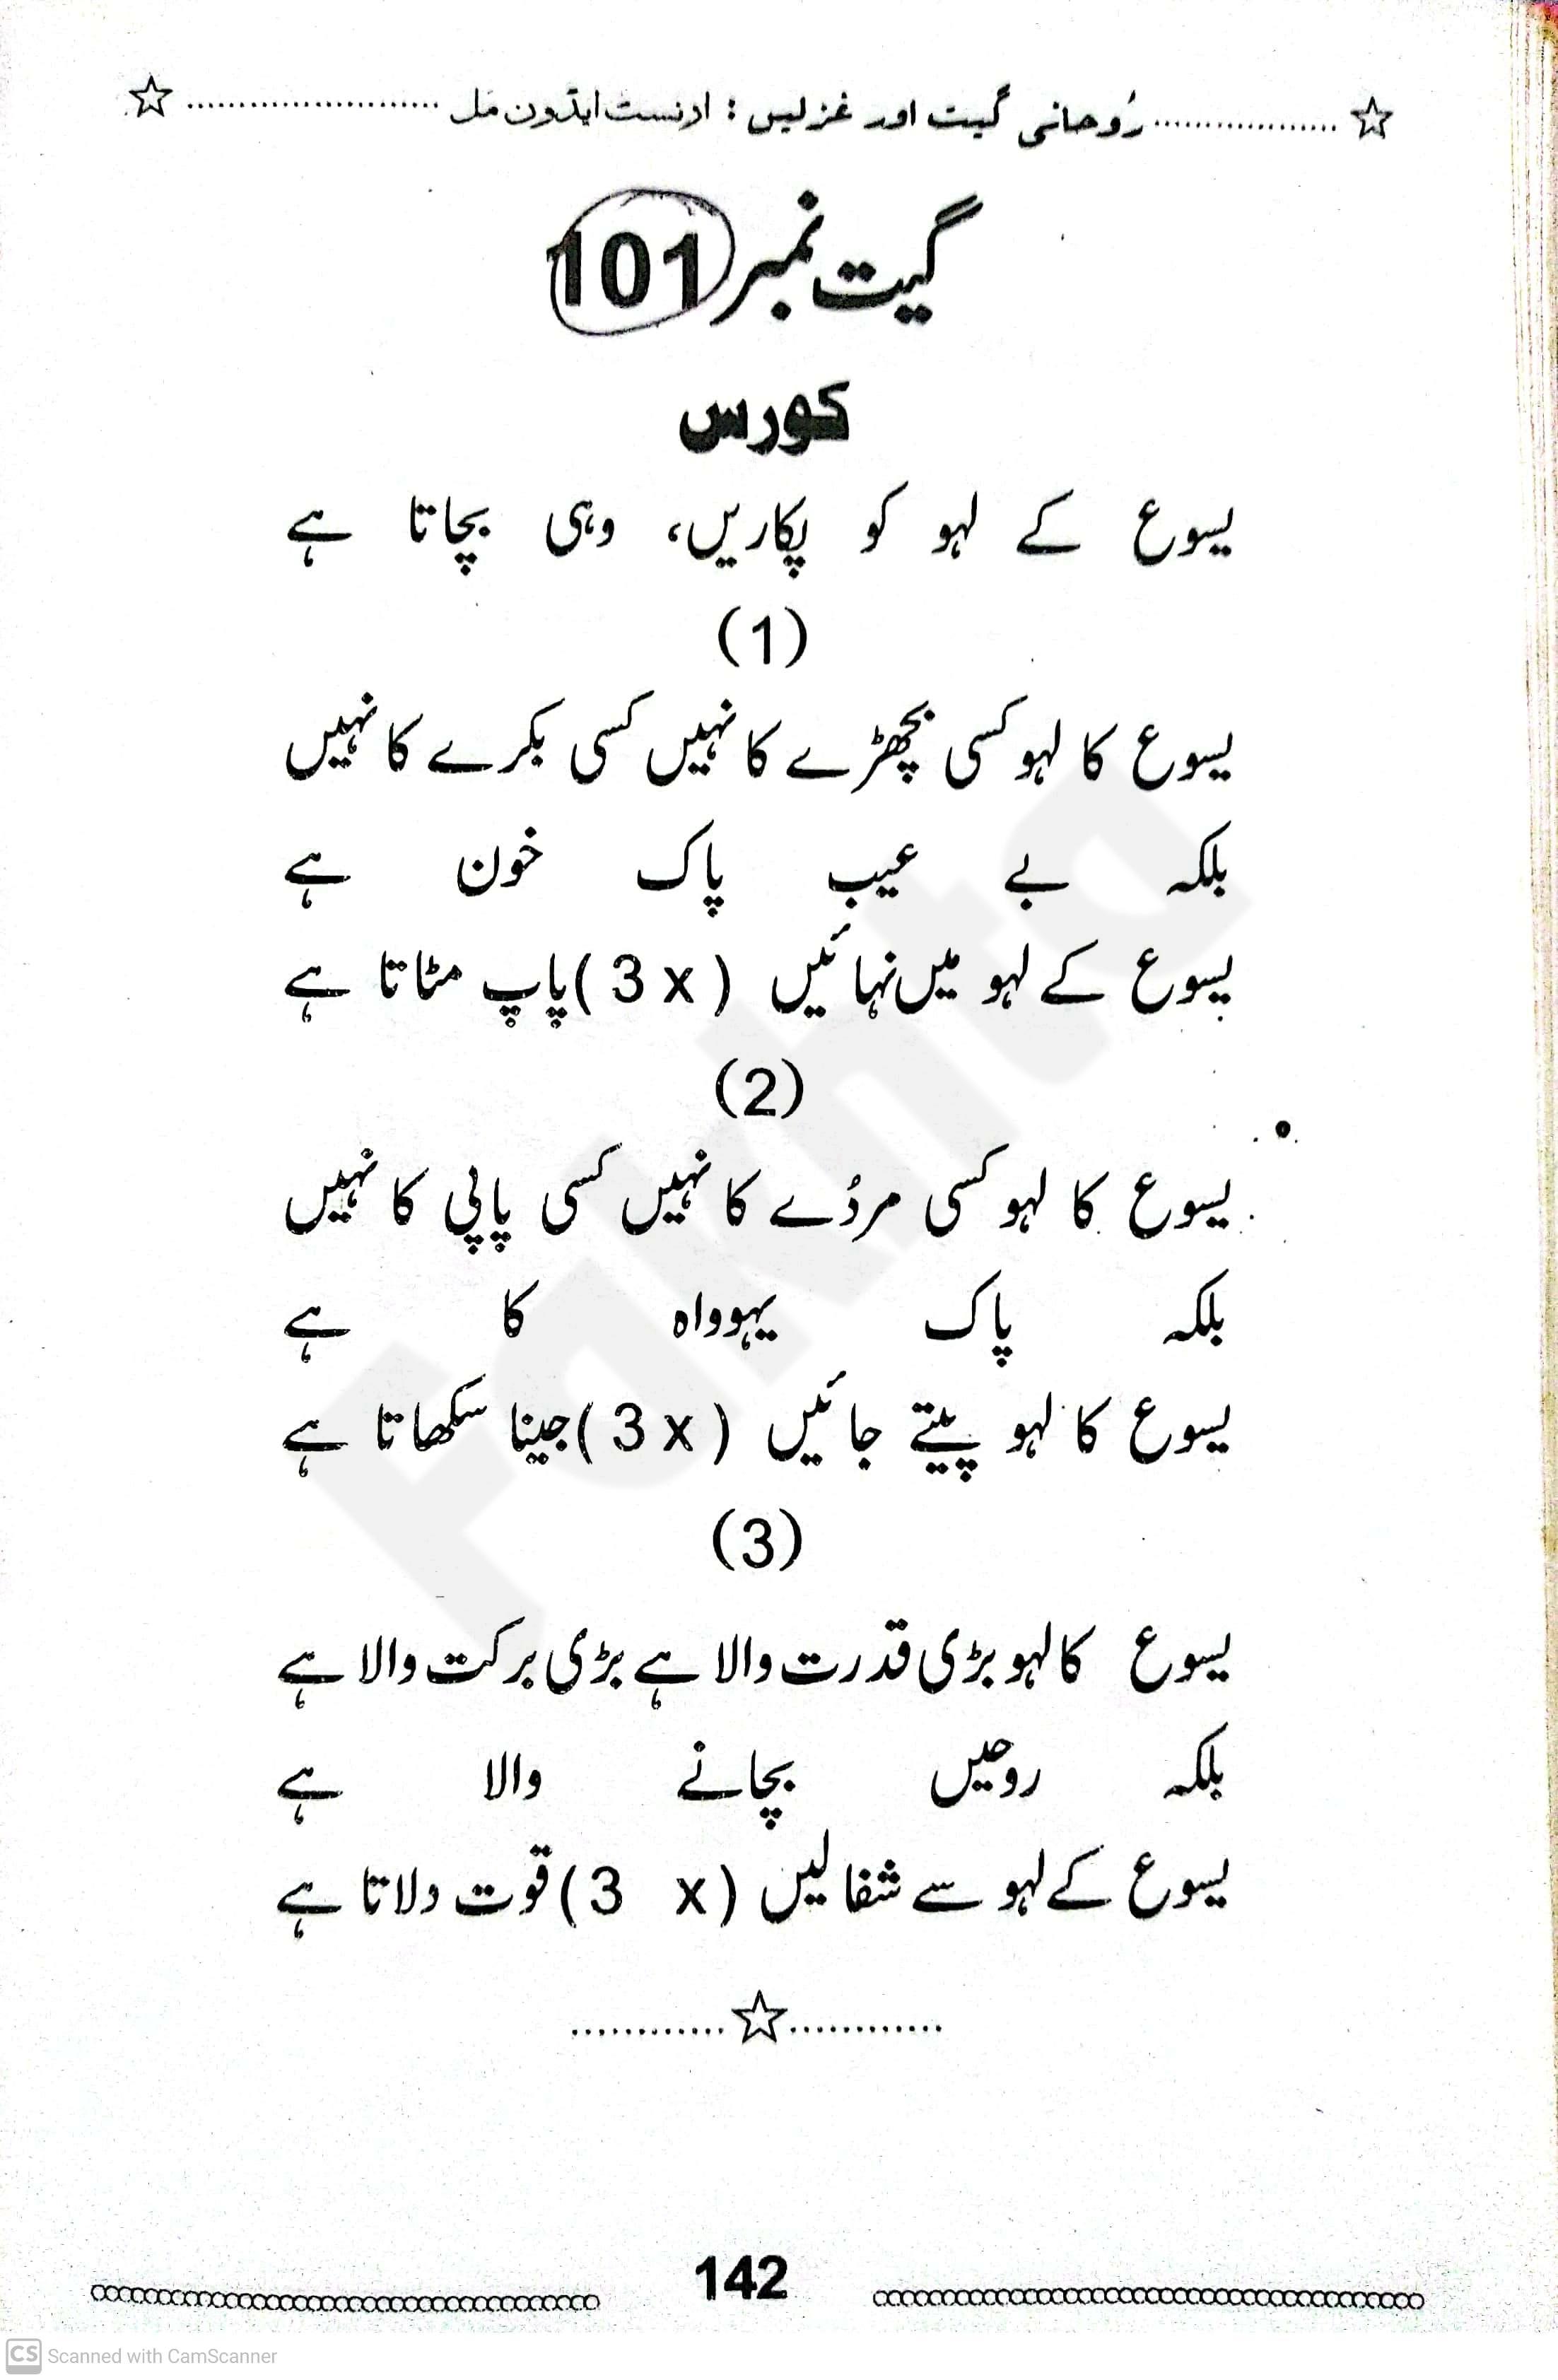 ☆ .................. رُوحانی گیت اور غزلیں : ارنسٹ ایڈون مَل ........................ ☆
گیت نمبر 101
کورس
یسوع کے لہو کو پکاریں، وہی بچاتا ہے
(1)
یسوع کا لہو کسی بچھڑے کا نہیں کسی بکرے کا نہیں
بلکہ بے عیب پاک خون ہے
یسوع کے لہو میں نہائیں (3 x) پاپ مٹاتا ہے
(2)
یسوع کا لہو کسی مردُے کا نہیں کسی پاپی کا نہیں
بلکہ پاک یہوواہ کا ہے
یسوع کا لہو پیتے جائیں (3 x) جینا سکھاتا ہے
(3)
یسوع کا لہو بڑی قدرت والا ہے بڑی برکت والا ہے
بلکہ روحیں بچانے والا ہے
یسوع کے لہو سے شفا لیں (3 x) قوت دلاتا ہے
............☆............
142
CS Scanned with CamScanner